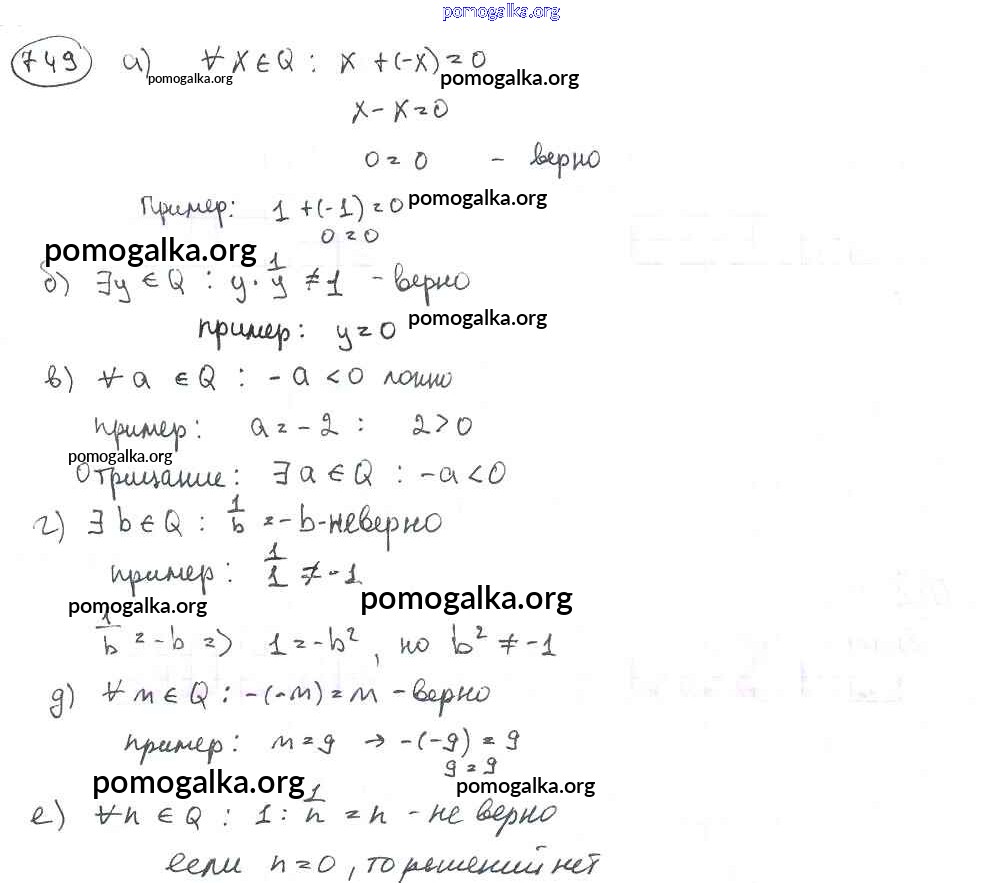 pomogalka.org
749 а) ∀ x ∈ Q : x + (-x) = 0
pomogalka.org pomogalka.org
x - x = 0
0 = 0 - верно
Пример: 1 + (-1) = 0 pomogalka.org
0 = 0
pomogalka.org
б) ∃ y ∈ Q : y · 1/y ≠ 1 - верно
пример: y = 0 pomogalka.org
в) ∀ a ∈ Q : - a < 0 ложно
пример: a = - 2 : 2 > 0
pomogalka.org
Отрицание: ∃ a ∈ Q : - a < 0
г) ∃ b ∈ Q : 1/b = - b - неверно
пример: 1/1 ≠ - 1
pomogalka.org pomogalka.org
1/b = - b => 1 = - b², но b² ≠ - 1
д) ∀ m ∈ Q : - (-m) = m - верно
пример: m = 9 → - (-9) = 9
9 = 9
pomogalka.org pomogalka.org
е) ∀ n ∈ Q : 1 : 1/n = n - не верно
если n = 0, то решений нет